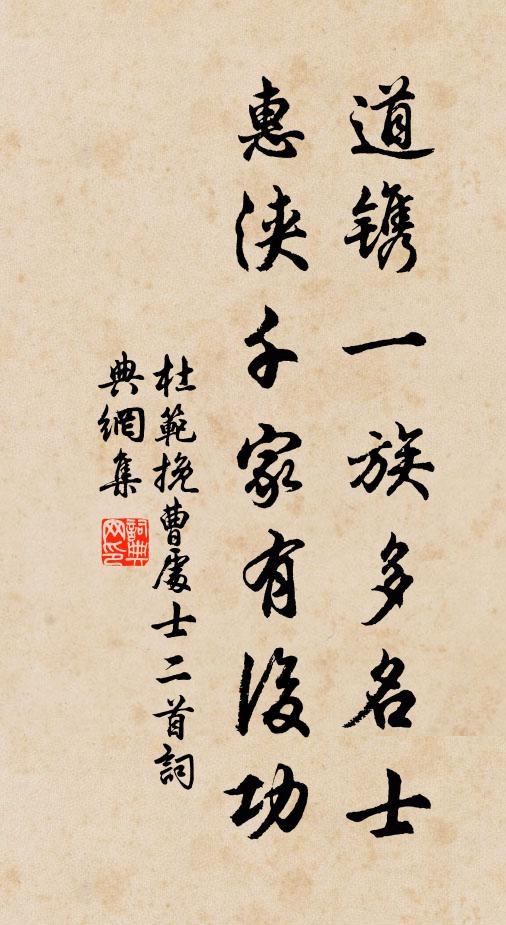 道鐫一族多名士
惠浹千家有後功
杜範挽曹處士二首詞
典網集
詞典網印